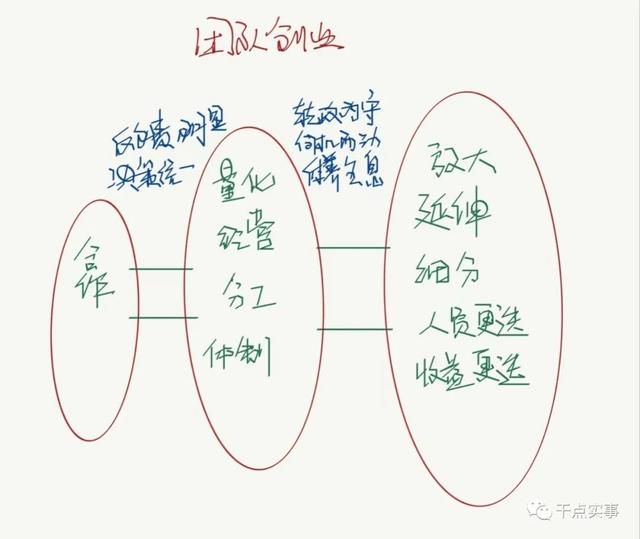 团队创业
责明显
决策统一
转攻为守
伺机而动
休养生息
合作
量化
经营
分工
体制
放大
延伸
细分
人员更迭
收益更迭
干点实事